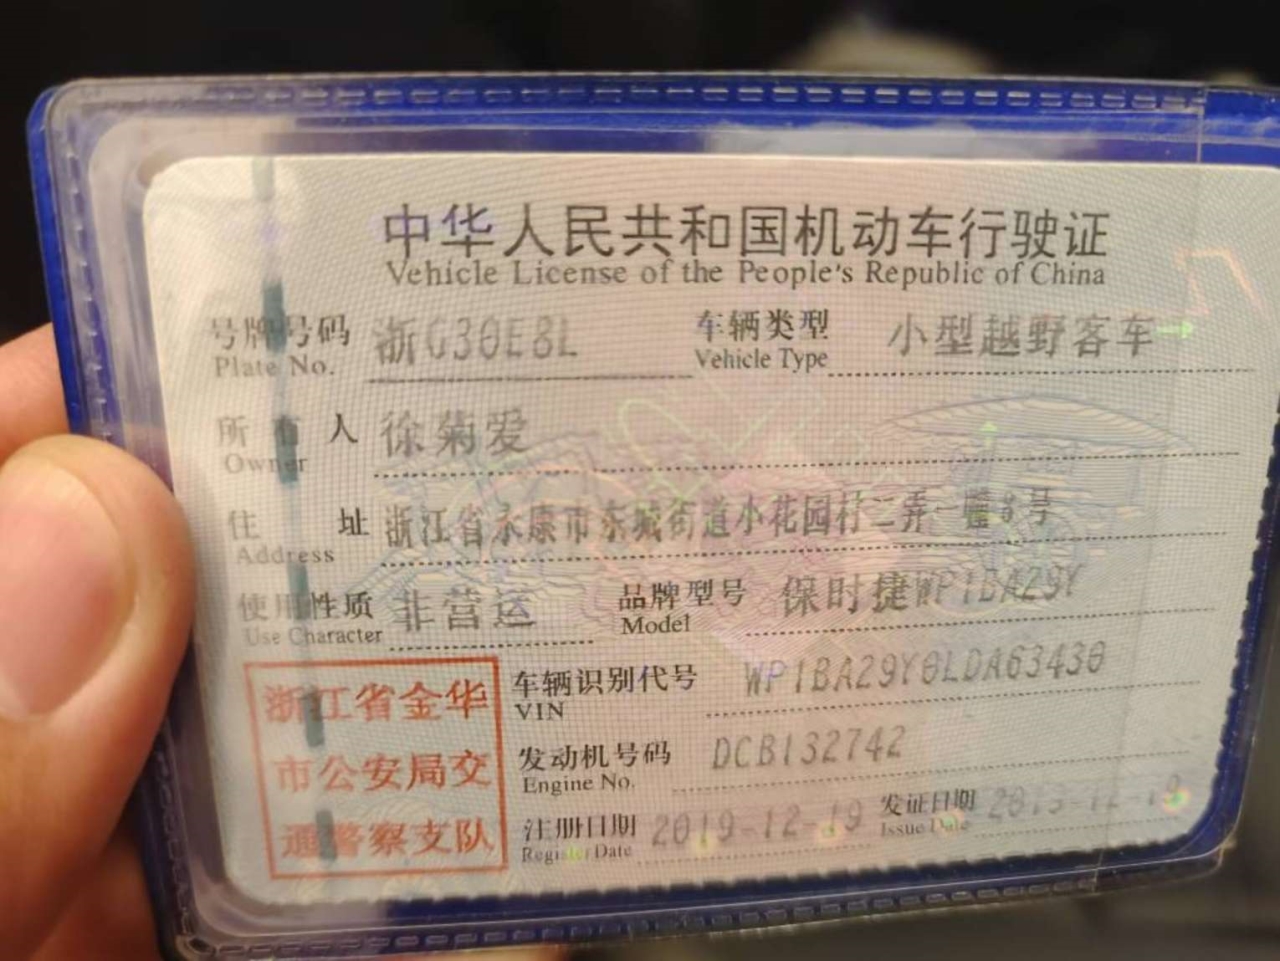 中华人民共和国机动车行驶证
Vehicle License of the People's Republic of China
号牌号码 浙G30E8L 车辆类型 小型越野客车
Plate No. Vehicle Type
所有人 徐菊爱
Owner
住址 浙江省永康市东城街道小花园村二弄一幢8号
Address
使用性质 非营运 品牌型号 保时捷WP1BA29Y
Use Character Model
浙江省金华
市公安局交
通警察支队
车辆识别代号 WP1BA29Y0LDA63430
VIN
发动机号码 DCB132742
Engine No.
注册日期 2019-12-19 发证日期
Register Date Issue Date